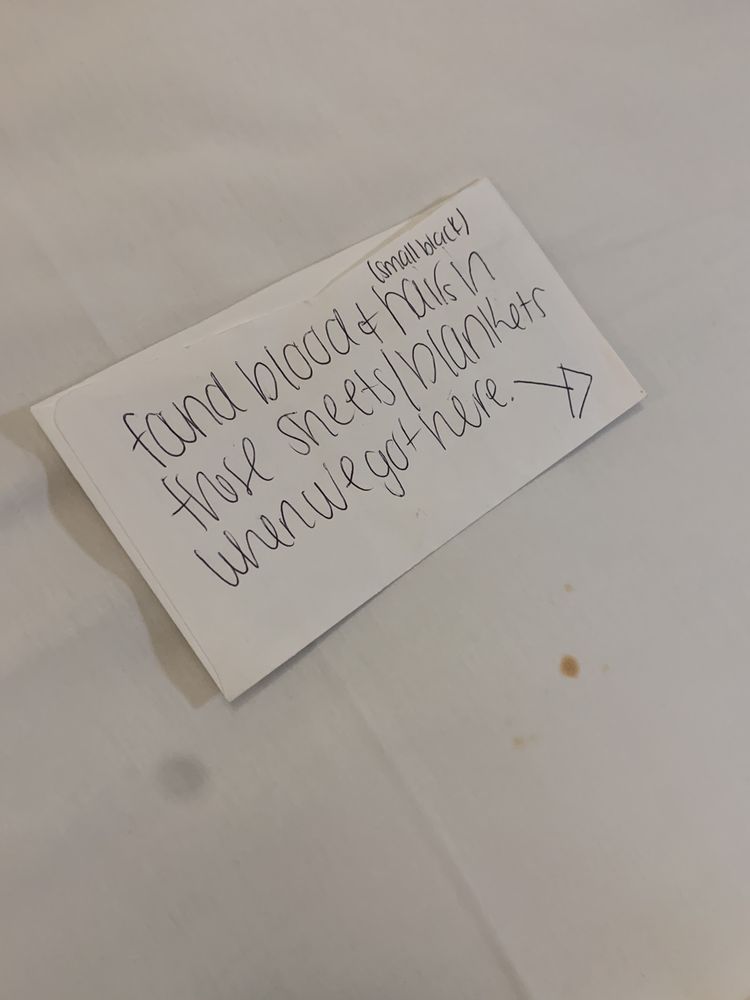 (small black)
found blood & hairs n
these sheets/blankets
when we got here.